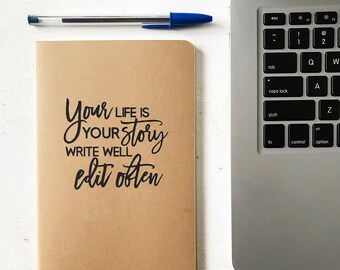 Your LIFE IS
YOUR story
WRITE WELL
edit often
tab
Q
caps lock
A
shift
Z
fn
control
option